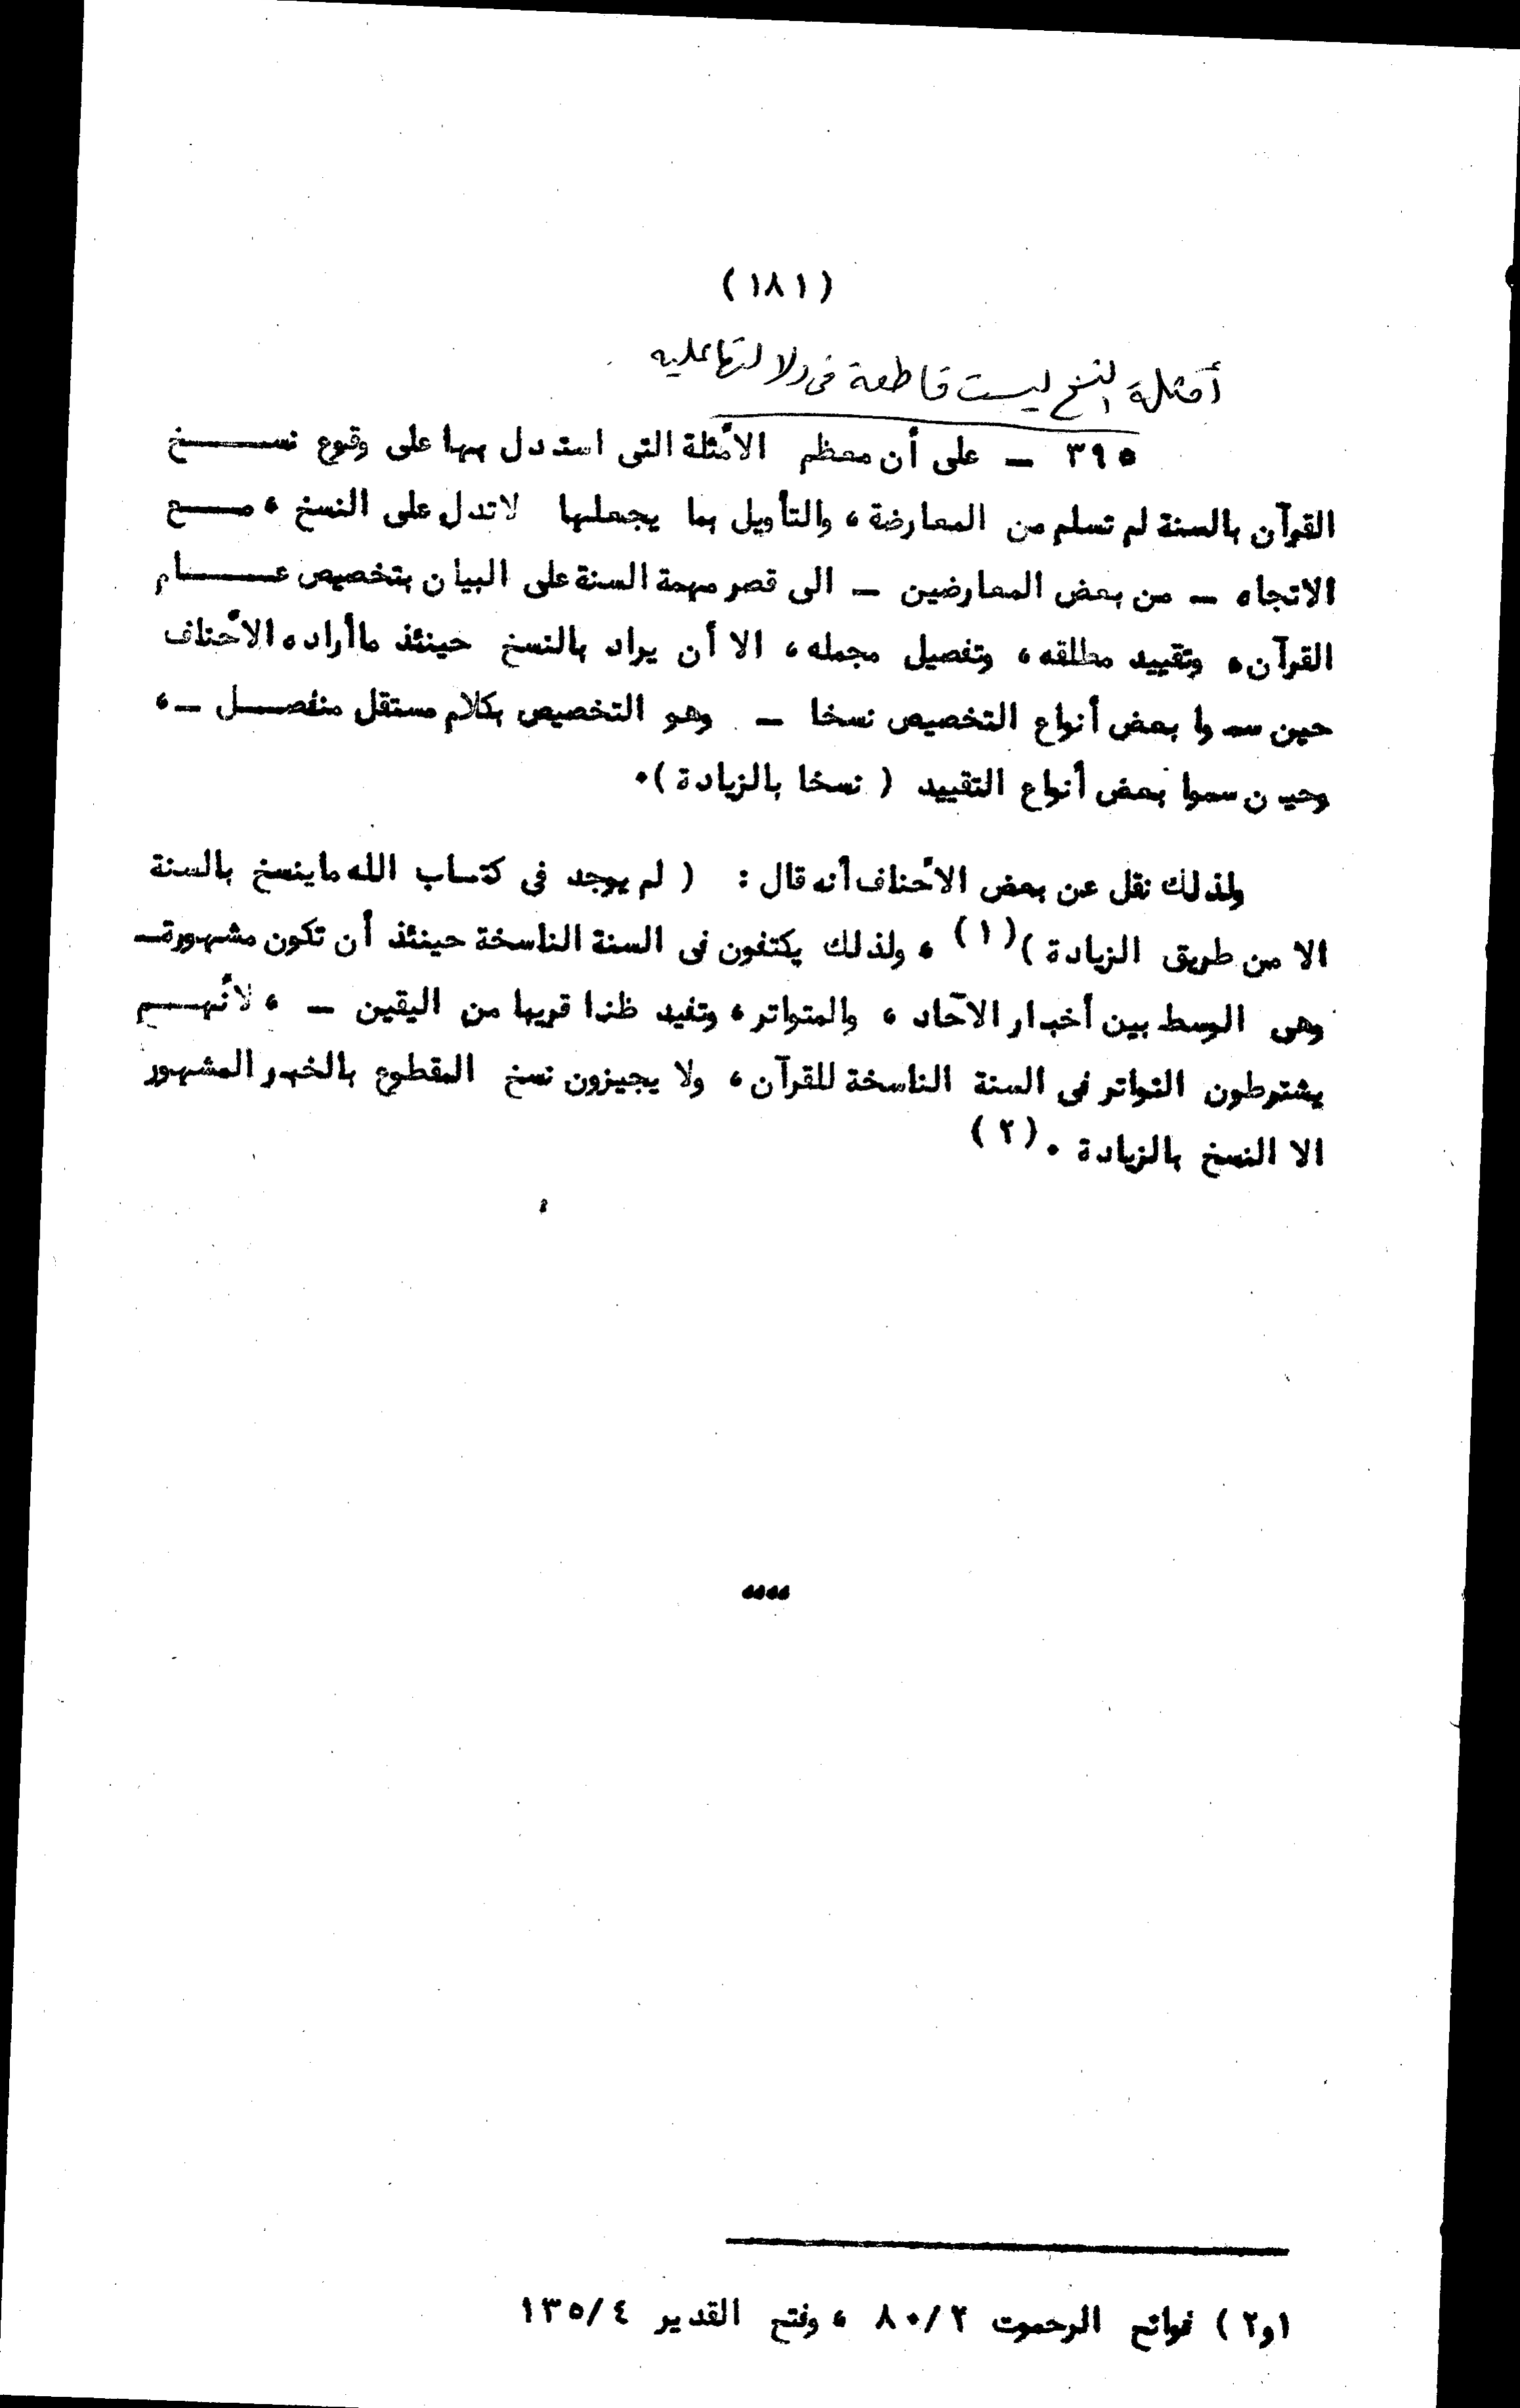 (١٨١)
أمثلة النسخ ليست قاطعة فى دلالتها عليه
٣٩٥ ــ على أن معظم الأمثلة التى استدل بها على وقوع نســــخ
القرآن بالسنة لم تسلم من المعارضة ، والتأويل بما يجعلها لاتدل على النسخ ، مــــع
الاتجاه ــ من بعض المعارضين ــ الى قصر مهمة السنة على البيان بتخصيص عــــام
القرآن، وتقييد مطلقه ، وتفصيل مجمله ، الا أن يراد بالنسخ حينئذ ماأراده الأحناف
حين سموا بعض أنواع التخصيص نسخا ــ وهو التخصيص بكلام مستقل منفصــــل ــ ،
وحين سموا بعض أنواع التقييد ( نسخا بالزيادة ) .
ولذلك نقل عن بعض الأحناف أنه قال : ( لم يوجد فى كتاب الله ماينسخ بالسنة
الا من طريق الزيادة ) (١) ، ولذلك يكتفون فى السنة الناسخة حينئذ أن تكون مشهورة ــ
وهى الوسط بين أخبار الآحاد ، والمتواتر ، وتفيد ظنا قريبا من اليقين ــ ، لأنهــــم
يشترطون التواتر فى السنة الناسخة للقرآن ، ولا يجيزون نسخ المقطوع بالخبر المشهور
الا النسخ بالزيادة . (٢)
،،،،
١و٢ ) فواتح الرحموت ٨٠/٢ ، وفتح القدير ١٣٥/٤